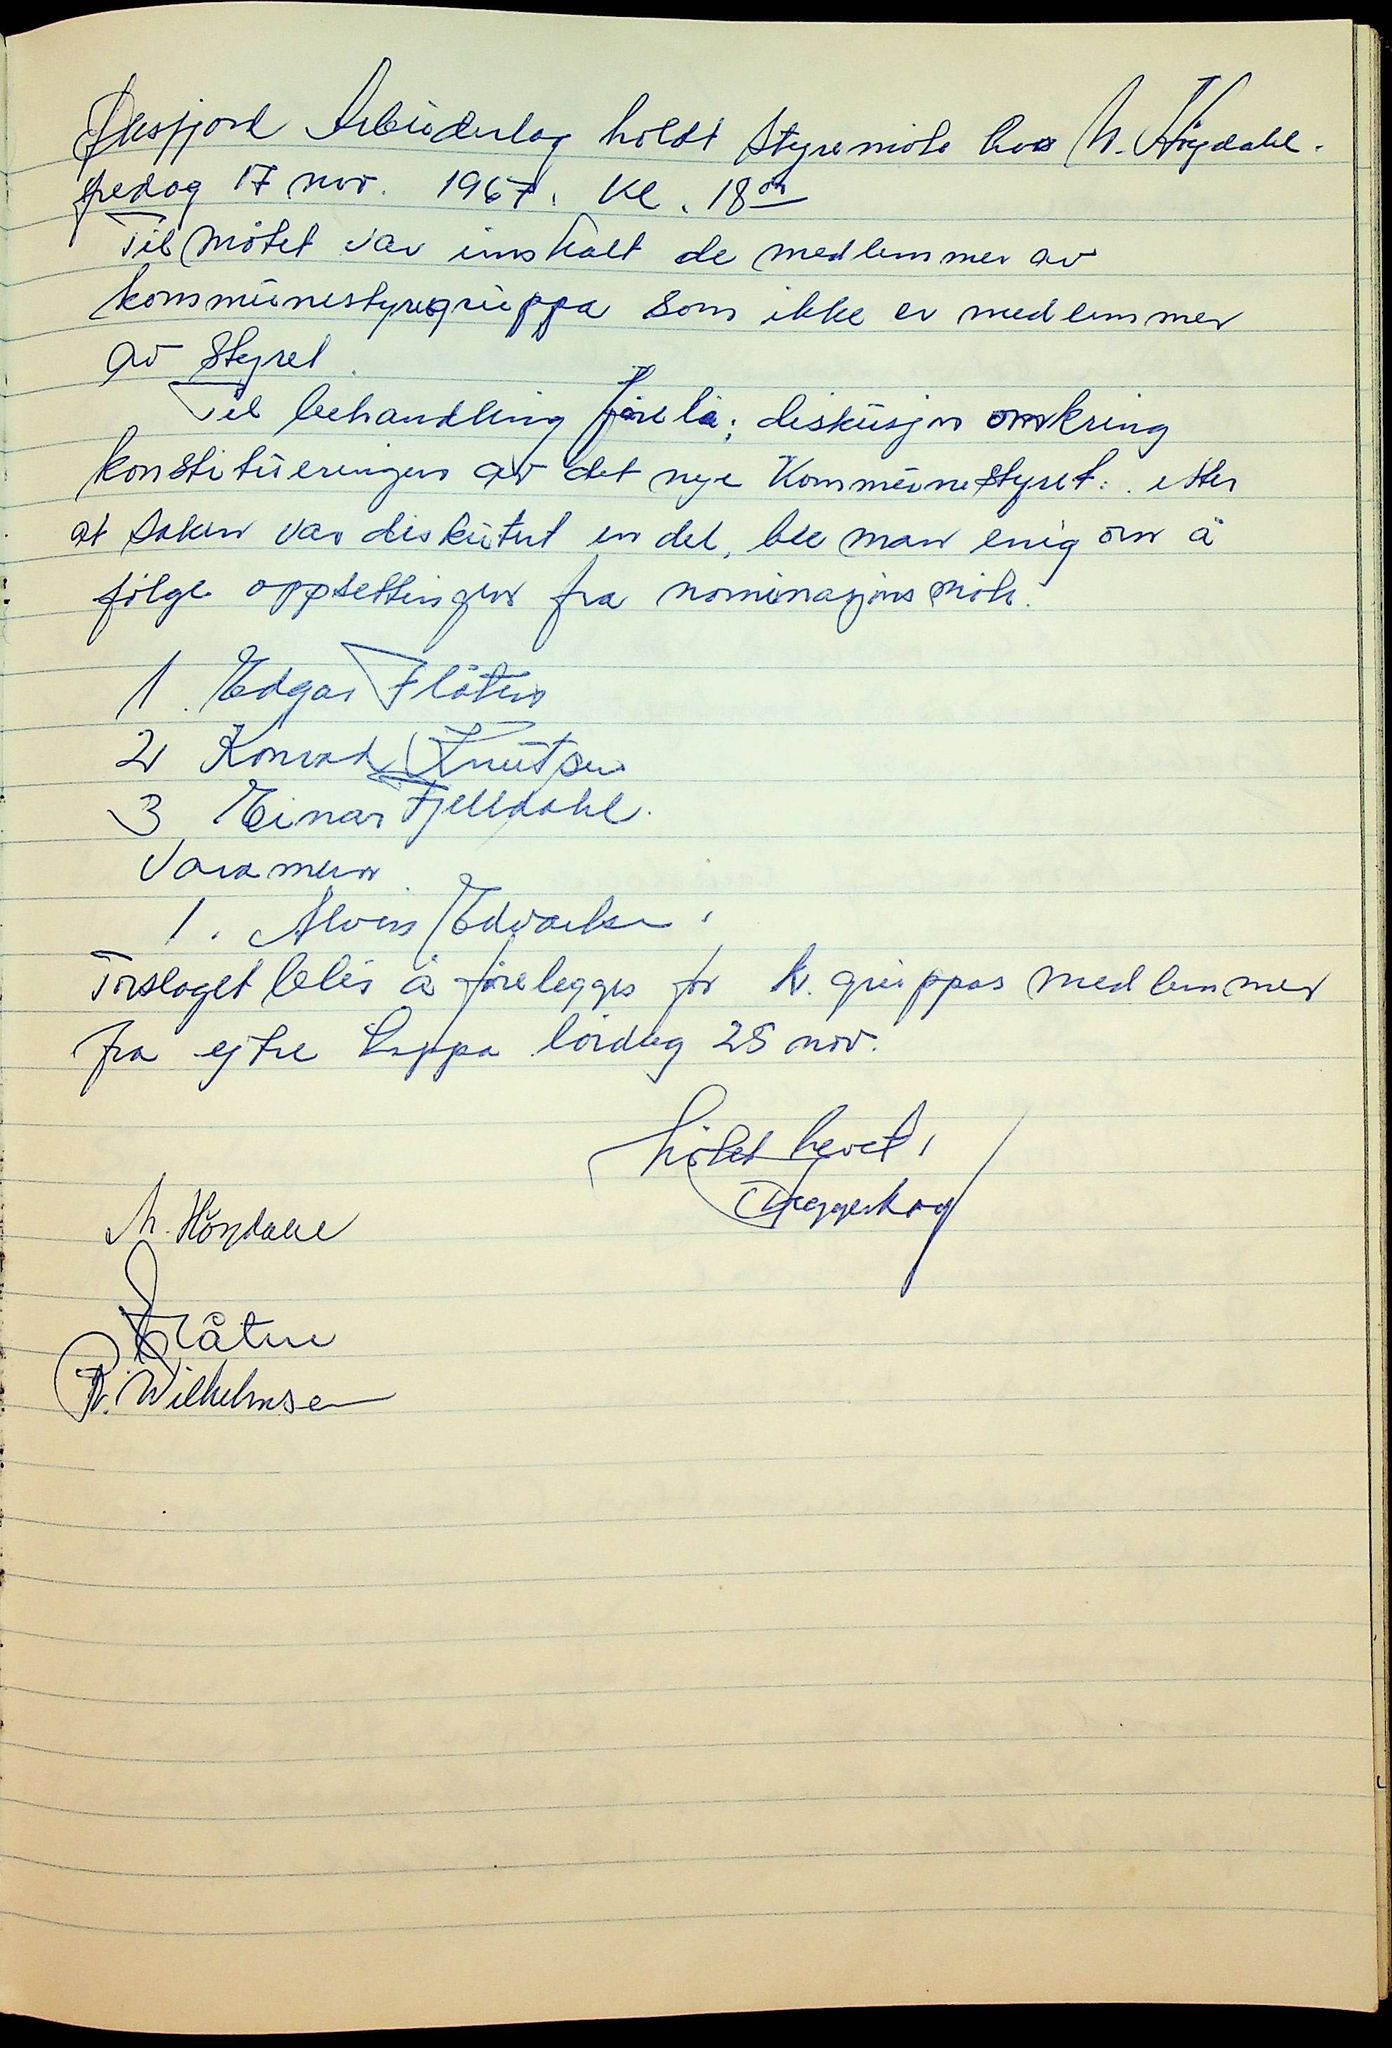 Øksfjord Arbeiderlag holdt Styremöte hos M. Høgdahl.
fredag 17 nov. 1967. Kl. 18⁰⁰
Til mötet var innkalt de medlemmer av
kommunestyregruppa som ikke er medlemmer
av Styret.
Til behandling förelå; diskusjon omkring
konstitueringen av det nye Kommunestyret. etter
at saken var diskutert en del, ble man enig om å
fölge oppsettingen fra nominasjons möte.
1. Edgar Flåten
2 Konrad Knutsen
3 Einar Fjelldahl.
Varamenn
1. Alvin Edvardsen.
Forslaget blir å forelegges for k. gruppas medlemmer
fra ejtre Loppa lördag 25 nov.
Mötet hevet,
M. Högdahl
Flåten
R. Wilhelmsen